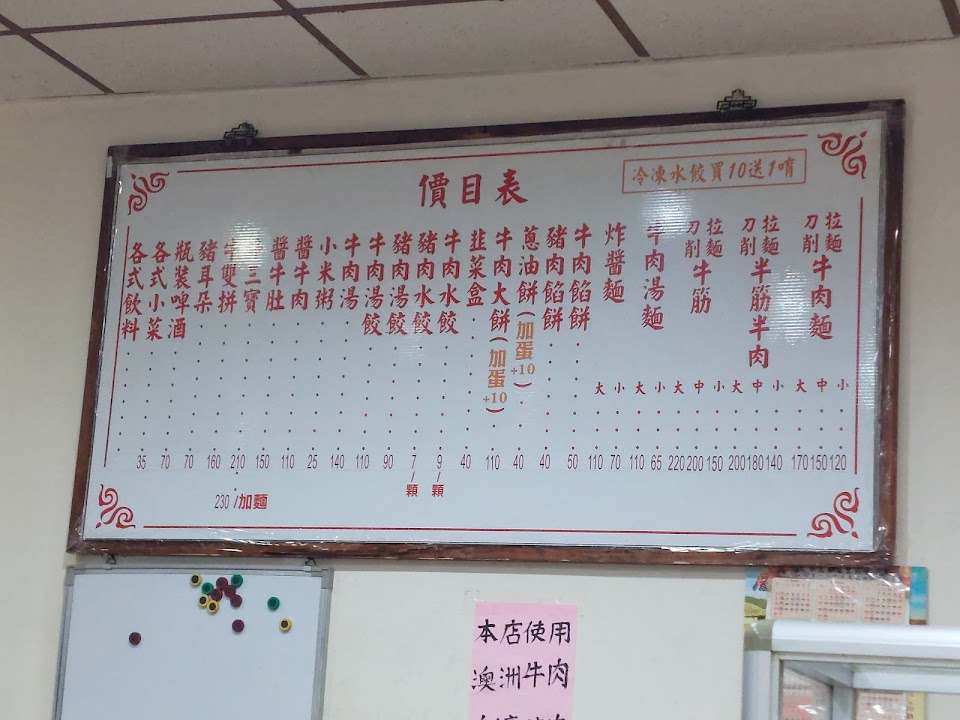 價目表
冷凍水餃買10送1唷
拉麵 刀削 牛肉麵 大 170 中 150 小 120
拉麵 刀削 半筋半肉 大 200 中 180 小 140
拉麵 刀削 牛筋 大 220 中 200 小 150
牛肉湯麵 大 110 小 65
炸醬麵 大 110 小 70
牛肉餡餅 50
豬肉餡餅 40
蔥油餅(加蛋+10) 40
牛肉大餅(加蛋+10) 110
韭菜盒 40
牛肉水餃 9/顆
豬肉水餃 7/顆
豬肉湯餃 90
牛肉湯餃 110
牛肉湯 140
小米粥 25
醬牛肉 110
醬牛肚 150
三寶 210 230/加麵
牛雙拼 160
豬耳朵 70
瓶裝啤酒 70
各式小菜 35
各式飲料
本店使用
澳洲牛肉